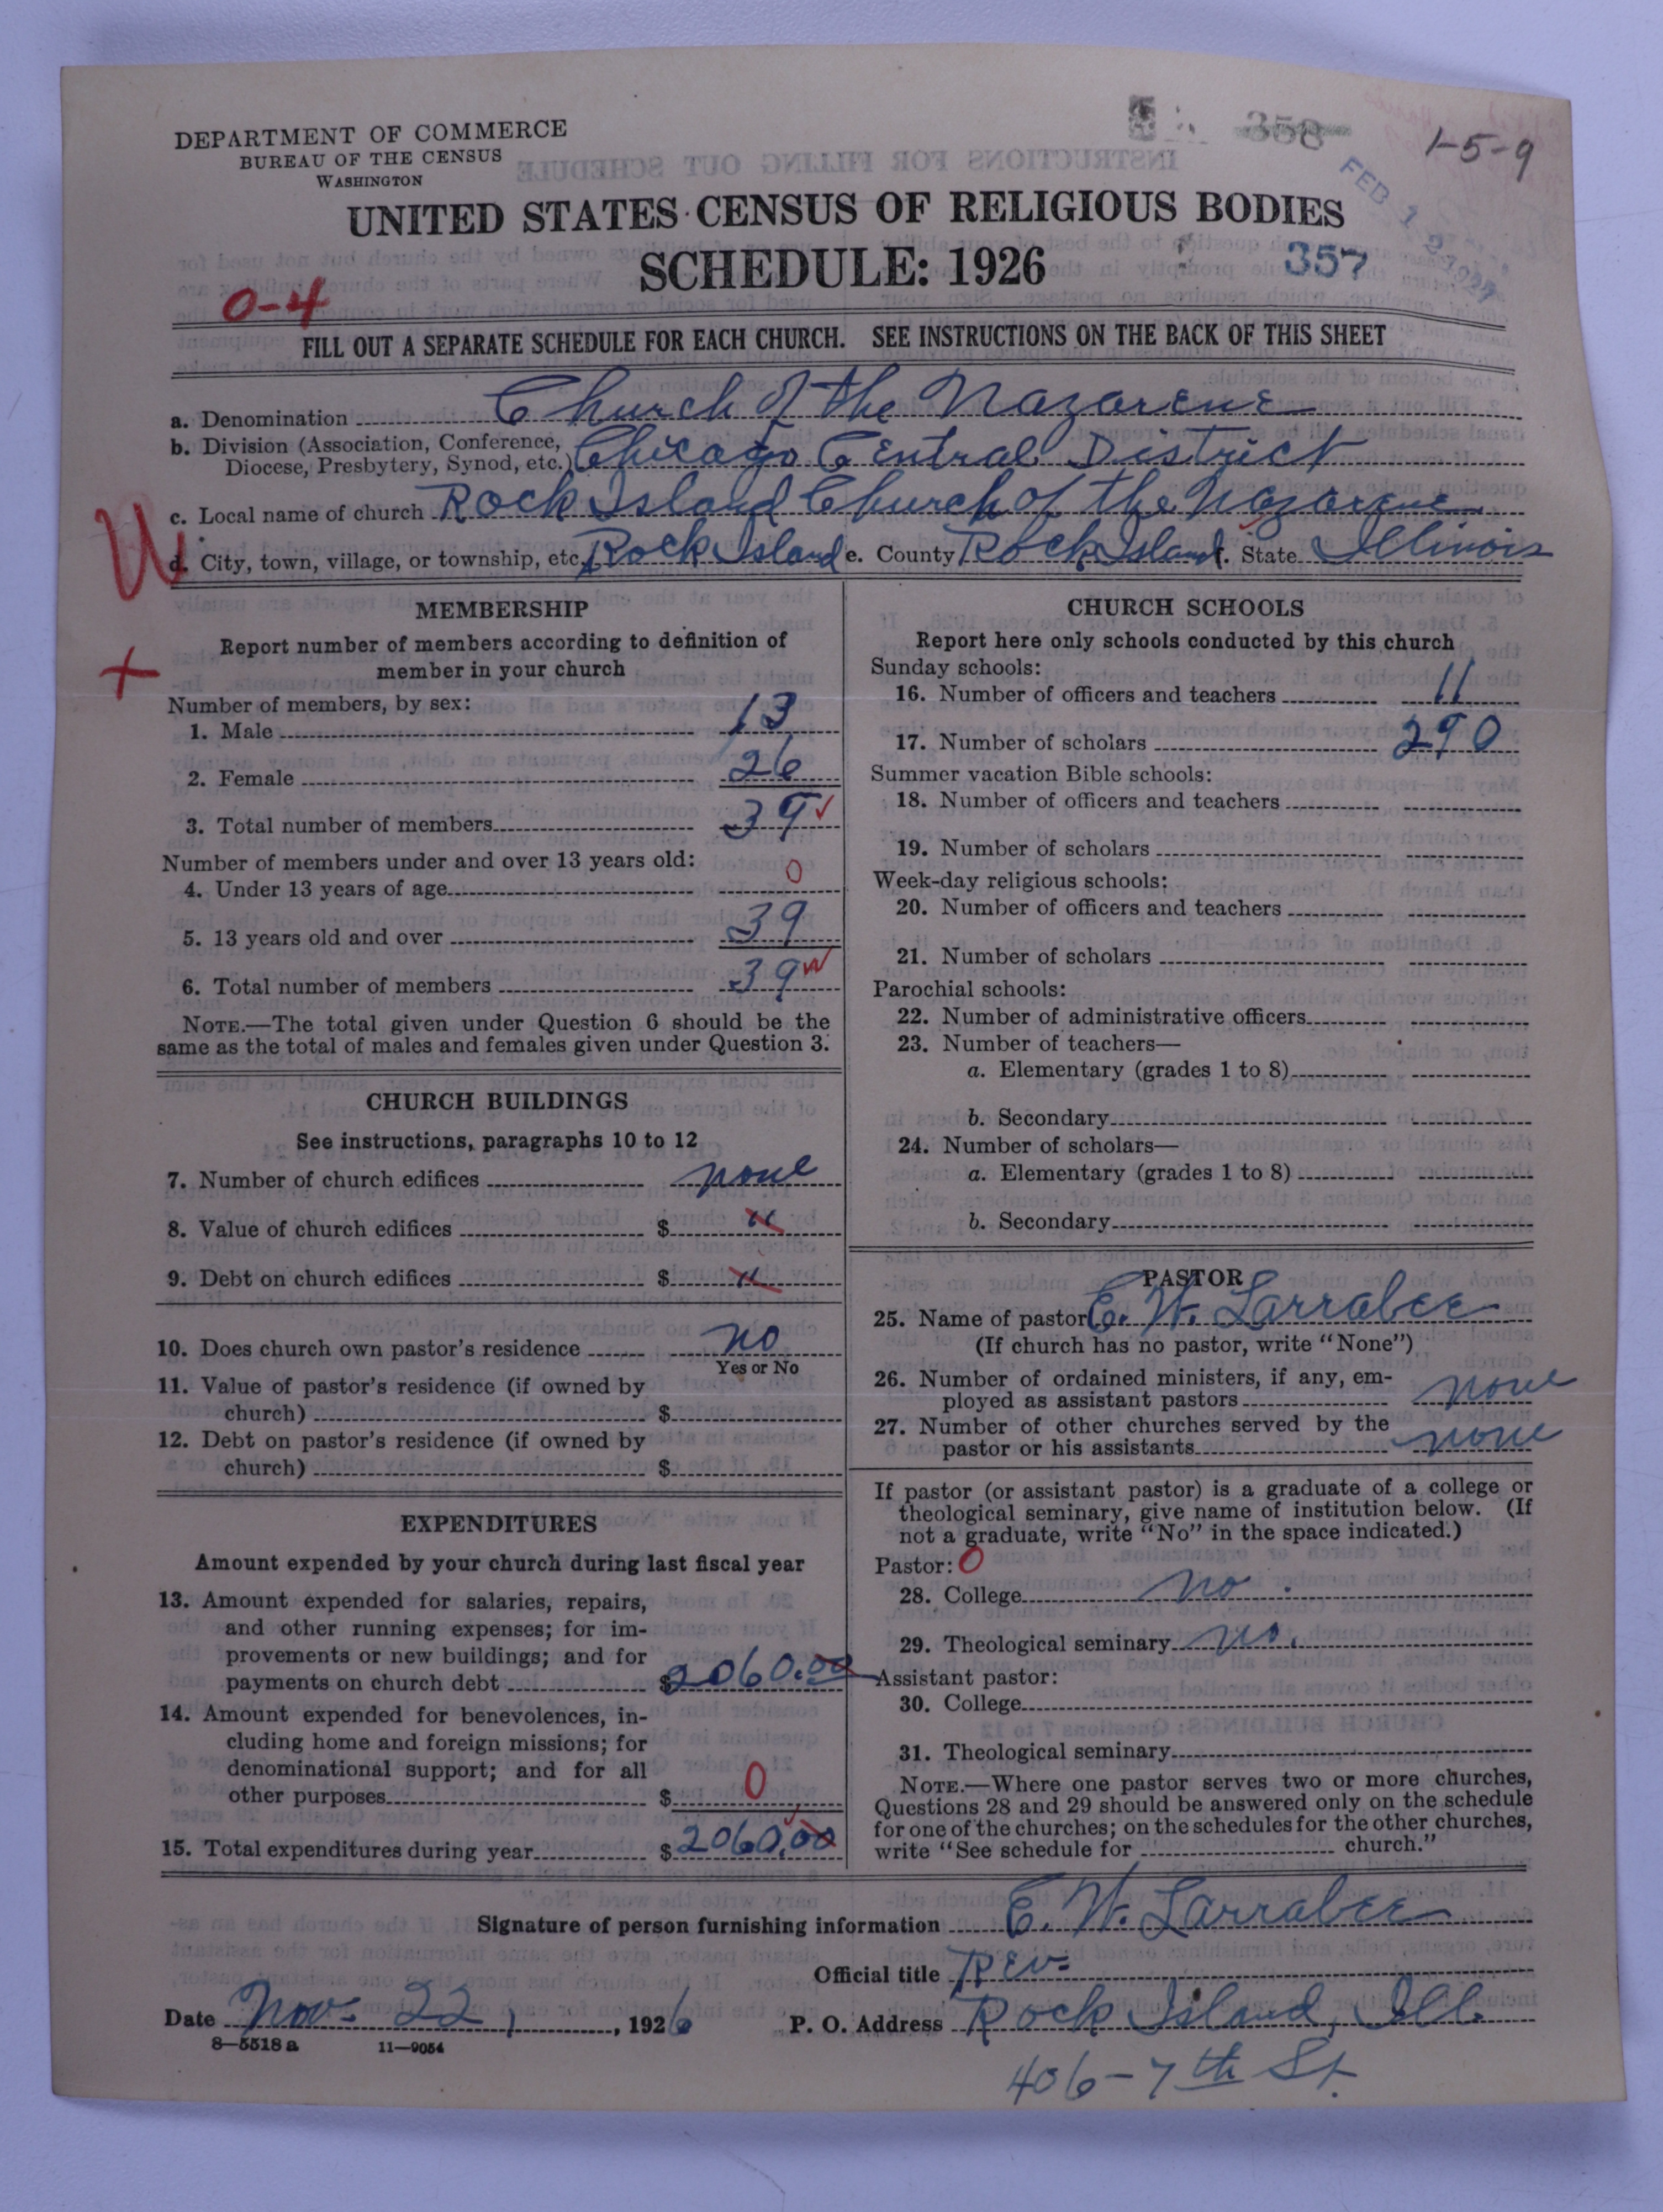 DEPARTMENT OF COMMERCE
BUREAU OF THE CENSUS
WASHINGTON
358
1-5-9
UNITED STATES CENSUS OF RELIGIOUS BODIES
SCHEDULE: 1926
357
FEB 1 2 1927
0-4
FILL OUT A SEPARATE SCHEDULE FOR EACH CHURCH. SEE INSTRUCTIONS ON THE BACK OF THIS SHEET
a. Denomination Church of the Nazarene
b. Division (Association, Conference,
Diocese, Presbytery, Synod, etc.) Chicago Central District
c. Local name of church Rock Island Church of the Nazarene
d. City, town, village, or township, etc. Rock Island e. County Rock Island f. State Illinois
MEMBERSHIP
Report number of members according to definition of
member in your church
Number of members, by sex:
1. Male 13
2. Female 26
3. Total number of members 39
Number of members under and over 13 years old:
4. Under 13 years of age 0
5. 13 years old and over 39
6. Total number of members 39
NOTE.—The total given under Question 6 should be the
same as the total of males and females given under Question 3.
CHURCH BUILDINGS
See instructions, paragraphs 10 to 12
7. Number of church edifices none
8. Value of church edifices $ "
9. Debt on church edifices $ "
10. Does church own pastor's residence no
Yes or No
11. Value of pastor's residence (if owned by
church) $
12. Debt on pastor's residence (if owned by
church) $
EXPENDITURES
Amount expended by your church during last fiscal year
13. Amount expended for salaries, repairs,
and other running expenses; for im-
provements or new buildings; and for
payments on church debt $2060.00
14. Amount expended for benevolences, in-
cluding home and foreign missions; for
denominational support; and for all
other purposes $ 0
15. Total expenditures during year $2060.00
CHURCH SCHOOLS
Report here only schools conducted by this church
Sunday schools:
16. Number of officers and teachers 11
17. Number of scholars 290
Summer vacation Bible schools:
18. Number of officers and teachers
19. Number of scholars
Week-day religious schools:
20. Number of officers and teachers
21. Number of scholars
Parochial schools:
22. Number of administrative officers
23. Number of teachers—
a. Elementary (grades 1 to 8)
b. Secondary
24. Number of scholars—
a. Elementary (grades 1 to 8)
b. Secondary
PASTOR
25. Name of pastor E. W. Larrabee
(If church has no pastor, write "None")
26. Number of ordained ministers, if any, em-
ployed as assistant pastors none
27. Number of other churches served by the
pastor or his assistants none
If pastor (or assistant pastor) is a graduate of a college or
theological seminary, give name of institution below. (If
not a graduate, write "No" in the space indicated.)
Pastor: 0
28. College no
29. Theological seminary no.
Assistant pastor:
30. College
31. Theological seminary
NOTE.—Where one pastor serves two or more churches,
Questions 28 and 29 should be answered only on the schedule
for one of the churches; on the schedules for the other churches,
write "See schedule for church."
Signature of person furnishing information E. W. Larrabee
Official title Rev.
Date Nov. 22, 1926
P. O. Address Rock Island, Ill.
8—5518 a 11—9054
406-7th St.